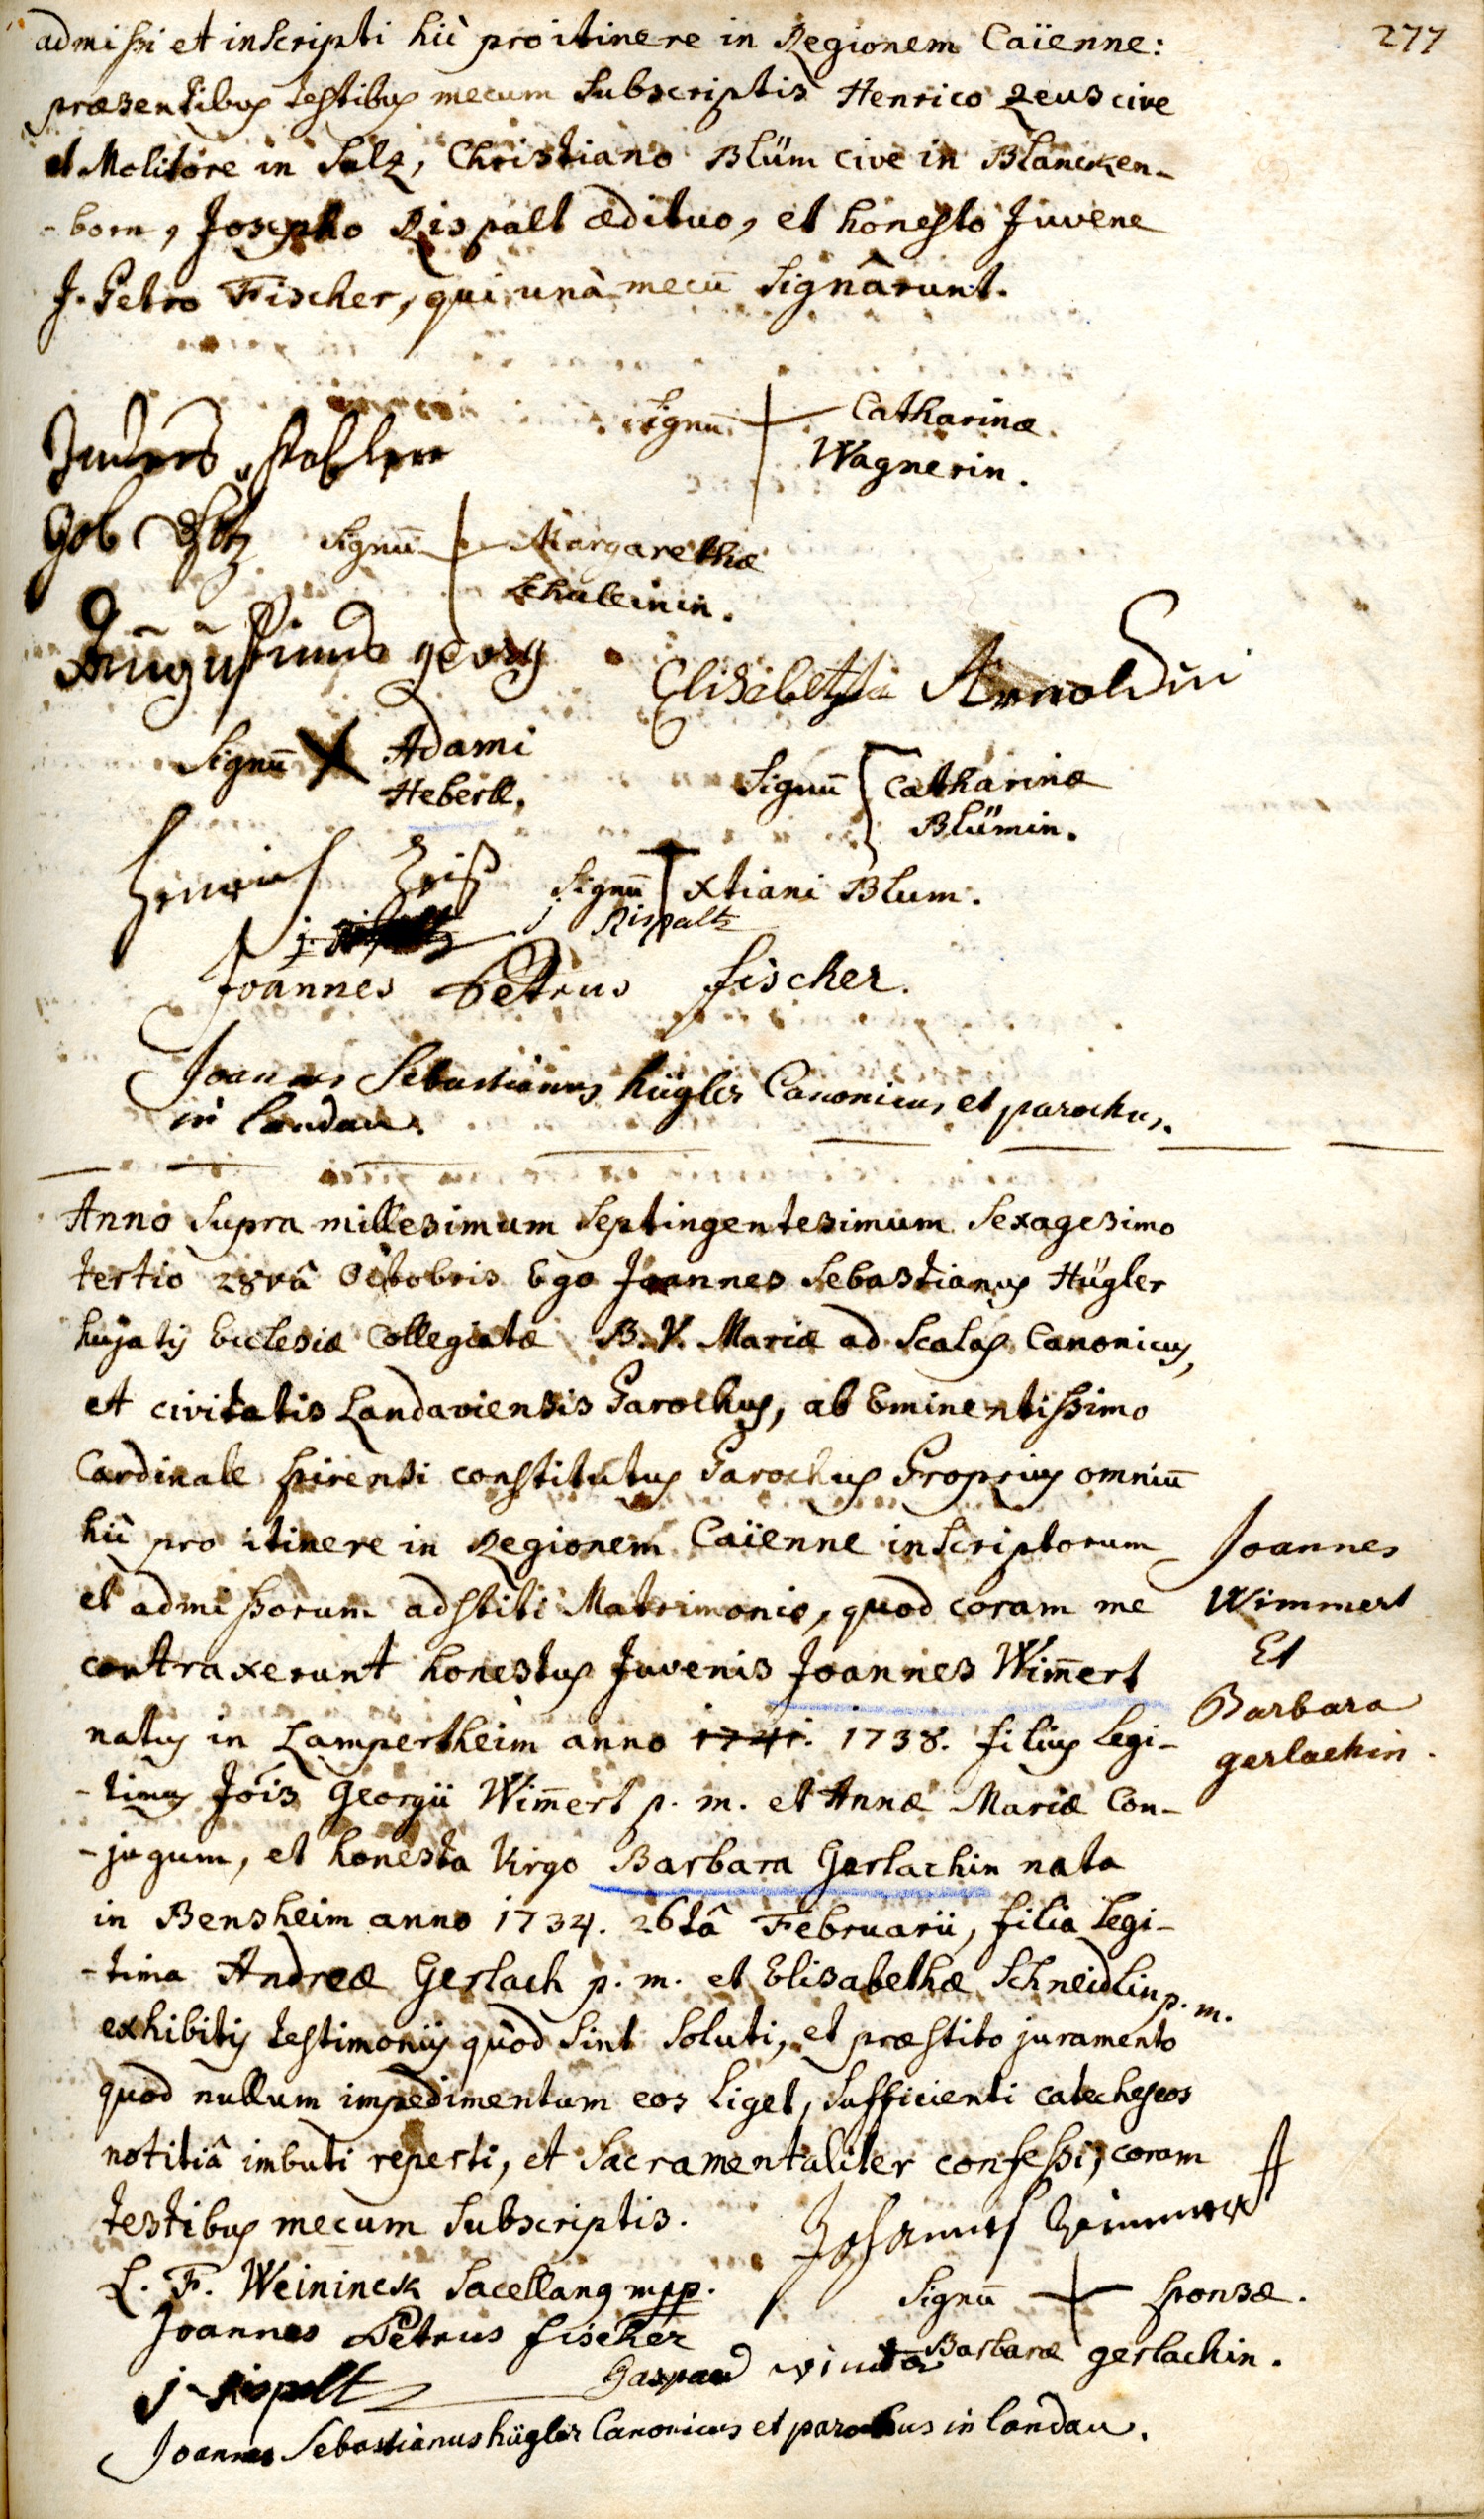 277
admissi et inscripti hìc pro itinere in Regionem Caïenne:
præsentibus testibus mecum subscriptis Henrico Zeus cive
et Molitore in Sulz, Christiano Blüm cive in Blancken-
-born, Josepho Rispalt ædituo, et honesto Juvene
J. Petro Fischer, qui unà mecū signârunt.
Signū Catharinæ
Wagnerin.
Signū Margarethæ
Augustinus georg
Elisabetha Arnoldin
Signū X Adami
Heberll.
Signū Catharinæ
Blümin.
Henrich
Signū xtiani Blum.
j Rispalt
Joannes Petrus fischer.
Joannes Sebastianus hügler Canonicus et parochus
in landau.
Anno supra millesimum septingentesimum sexagesimo
tertio 28vâ Octobris Ego Joannes Sebastianus Hügler
hujatis Ecclesiæ Collegiatæ B. V. Mariæ ad Scalas Canonicus,
et civitatis Landaviensis Parochus, ab Eminentissimo
Cardinale spirensi constitutus Parochus Proprius omniū
hìc pro itinere in Regionem Caïenne inscriptorum
et admissorum adstiti Matrimonio, quod coram me
contraxerunt honestus Juvenis Joannes Wim̄ert
natus in Lampertheim anno 1741. 1738. filius legi-
-timus Jōis Georgii Wim̄ert p. m. et Annæ Mariæ Con-
-jugum, et honesta Virgo Barbara Gerlachin nata
in Bensheim anno 1734. 26tâ Februarii, filia legi-
-tima Andreæ Gerlach p. m. et Elisabethæ Schneidlin p. m.
exhibitis testimoniis quòd sint soluti, et præstito juramento
quod nullum impedimentum eos liget, sufficienti catecheseos
notitiâ imbuti reperti, et sacramentaliter confessi, coram
testibus mecum subscriptis.
Joannes
Wimmert
Et
Barbara
gerlachin.
Johannes Wimmert
L. F. Weininck Sacellanus mpp.
Signū sponsæ.
Joannes Petrus fischer
Barbaræ gerlachin.
j. Rispalt
Joannes Sebastianus hügler Canonicus et parochus in landau.